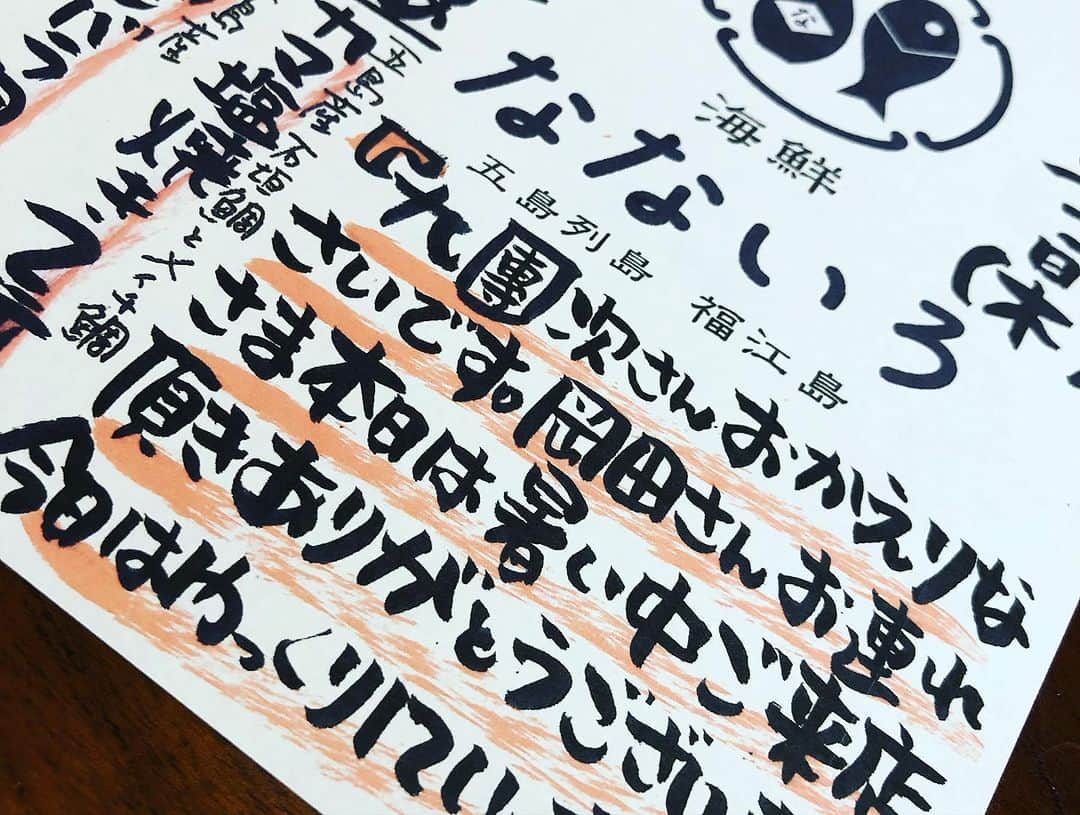 海鮮
なないろ
五島列島 福江島
團次さんおかえりな
さいです。岡田さんお連れ
さま本日は暑い中ご来店
頂きありがとうござい
今日はゆっくりしてい
五島産 石垣鯛とメイチ鯛
カマ塩焼き
島産